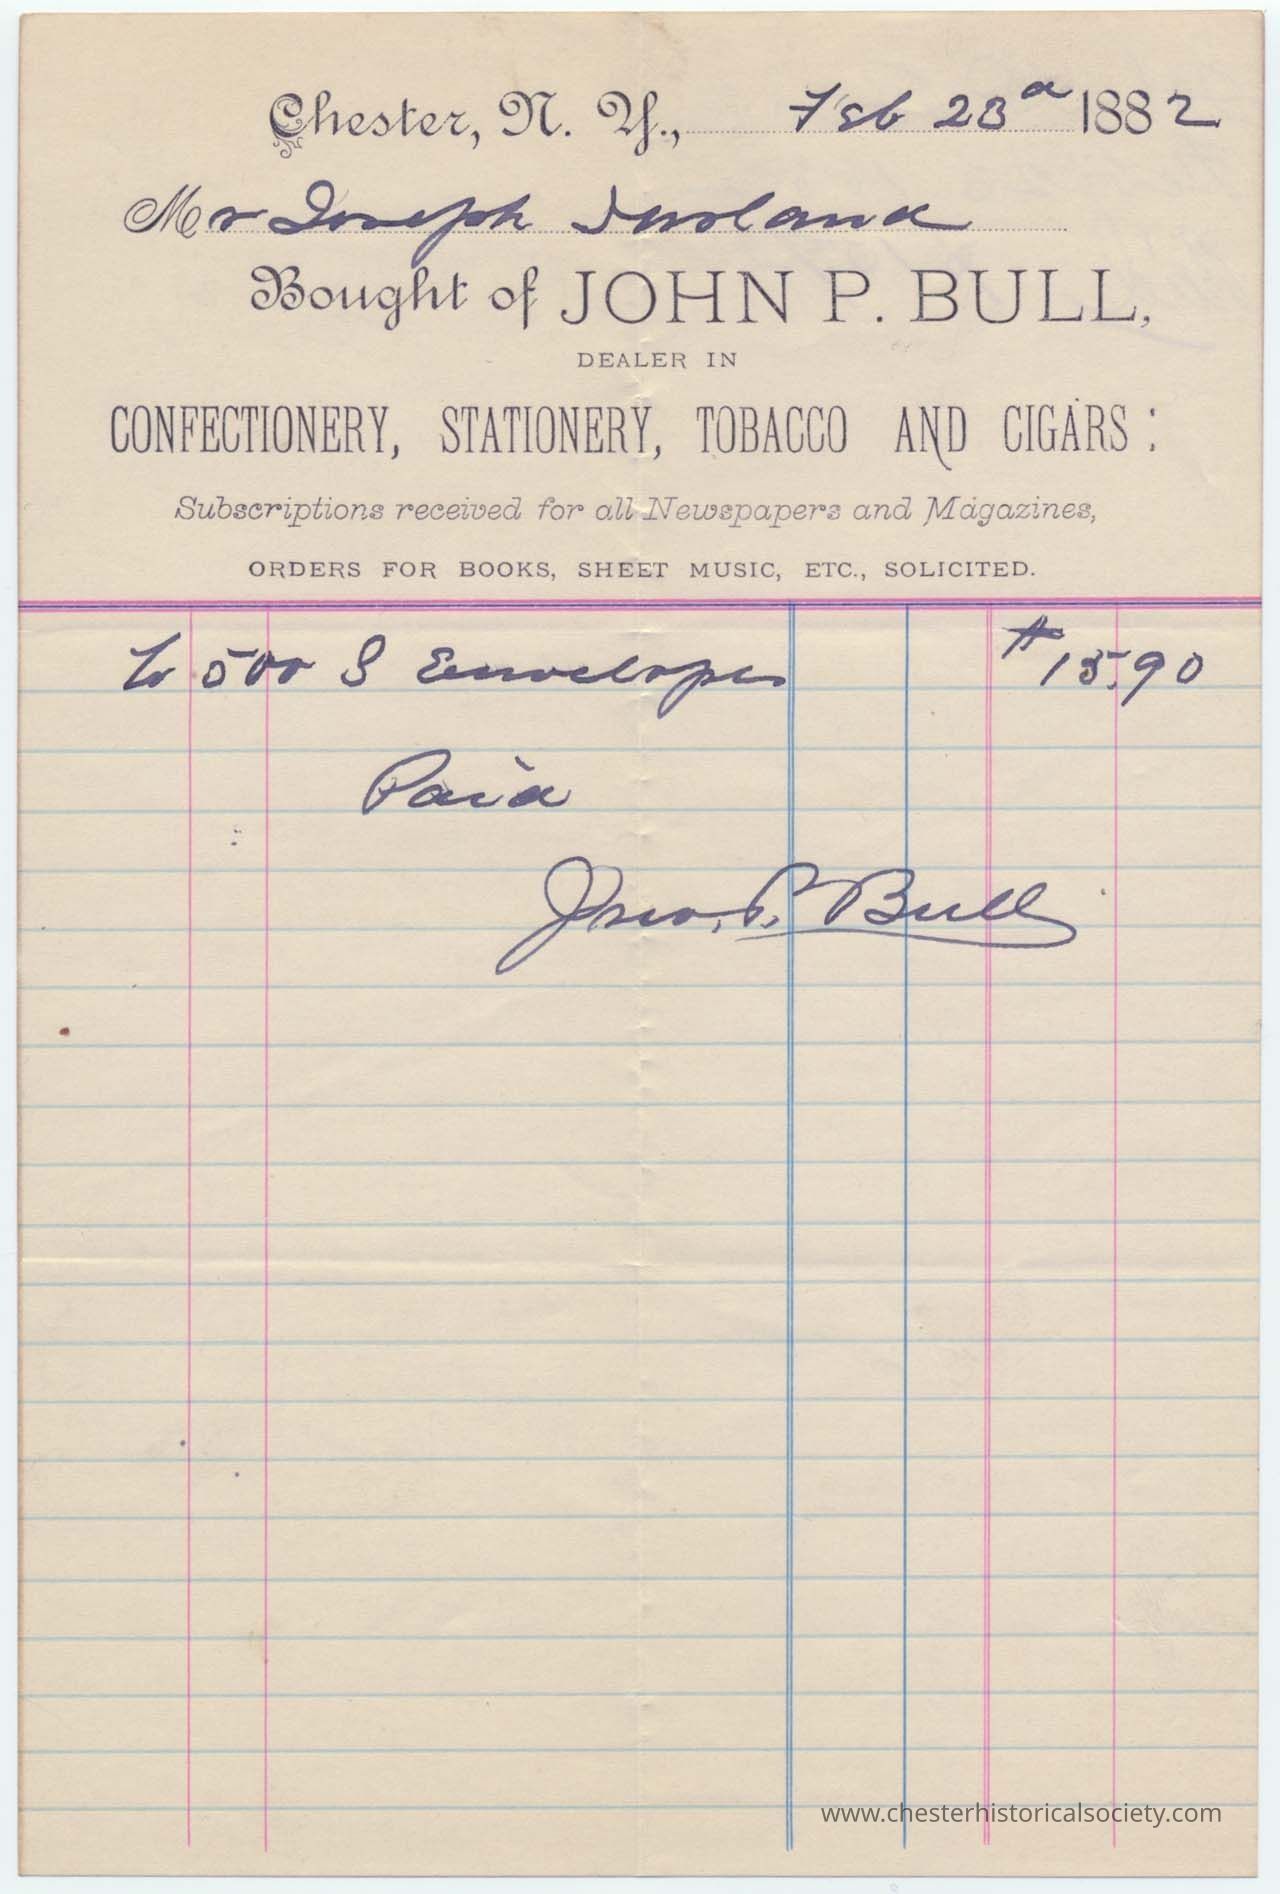 Chester, N. Y., Feb 23d 1882
Mr Joseph Durland
Bought of JOHN P. BULL,
DEALER IN
CONFECTIONERY, STATIONERY, TOBACCO AND CIGARS:
Subscriptions received for all Newspapers and Magazines,
ORDERS FOR BOOKS, SHEET MUSIC, ETC., SOLICITED.
To 500 S Envelopes $15.90
Paid
Jno. P. Bull
www.chesterhistoricalsociety.com